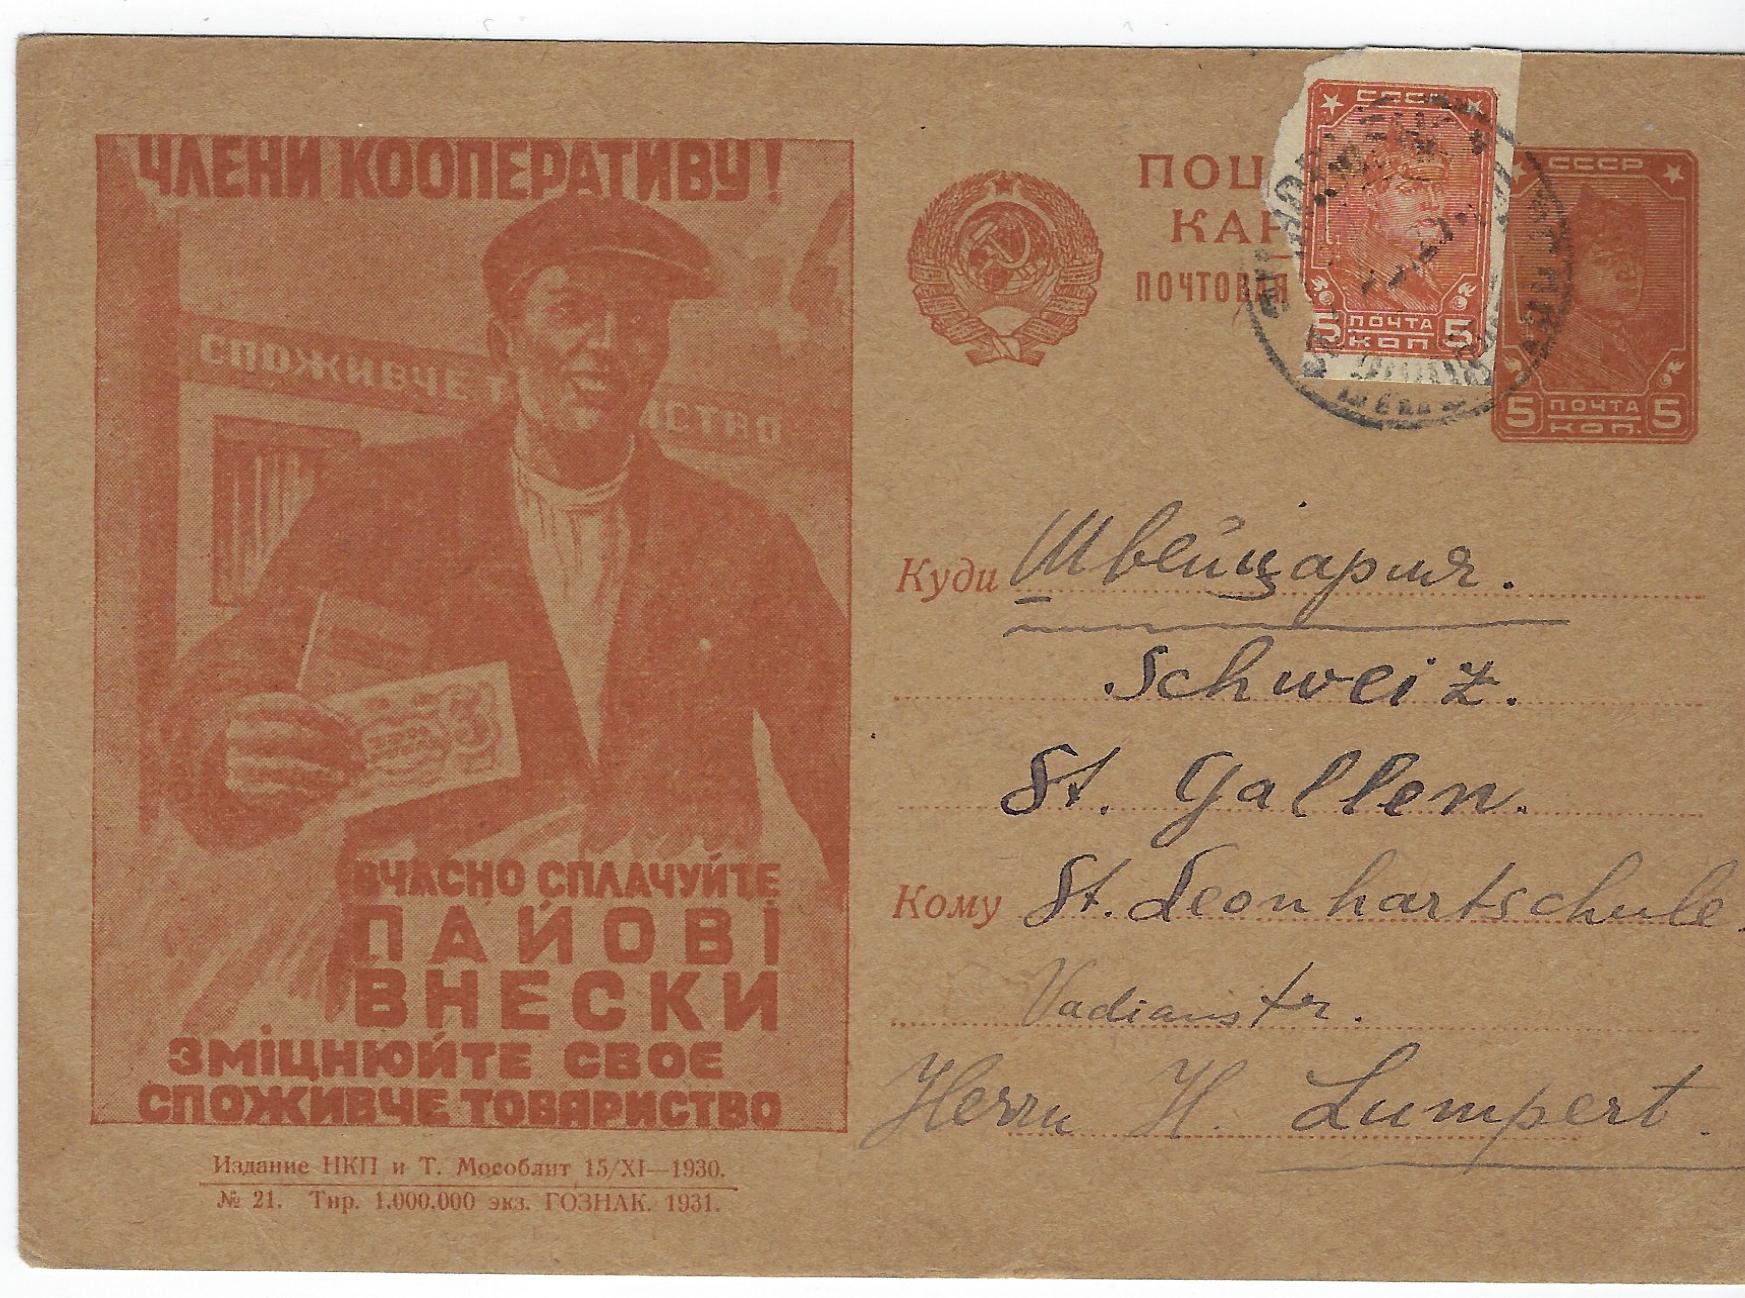 ЧЛЕНИ КООПЕРАТИВУ!
СПОЖИВЧЕ Т ИСТВО
ВЧАСНО СПЛАЧУЙТЕ
ПАЙОВІ
ВНЕСКИ
ЗМІЦНЮЙТЕ СВОЄ
СПОЖИВЧЕ ТОВАРИСТВО
Издание НКП и Т. Мособлит 15/XI—1930.
№ 21. Тир. 1.000.000 экз. ГОЗНАК. 1931.
ПОШ
КАР
ПОЧТОВАЯ
СССР
5 ПОЧТА 5
КОП
СССР
5 ПОЧТА 5
КОП.
Куди Швейцария.
Schweiz.
St. Gallen.
Кому St. Leonhartschule.
Vadianstr.
Herrn H. Lumpert.